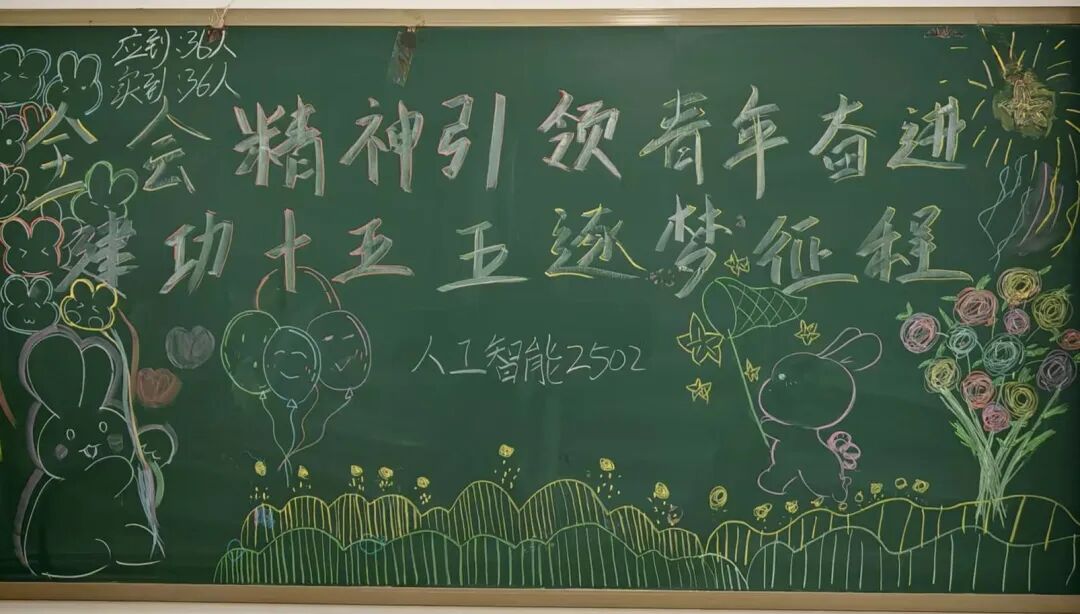 应到:36人
实到:36人
全会精神引领青年奋进
建功十五五逐梦征程
人工智能2502